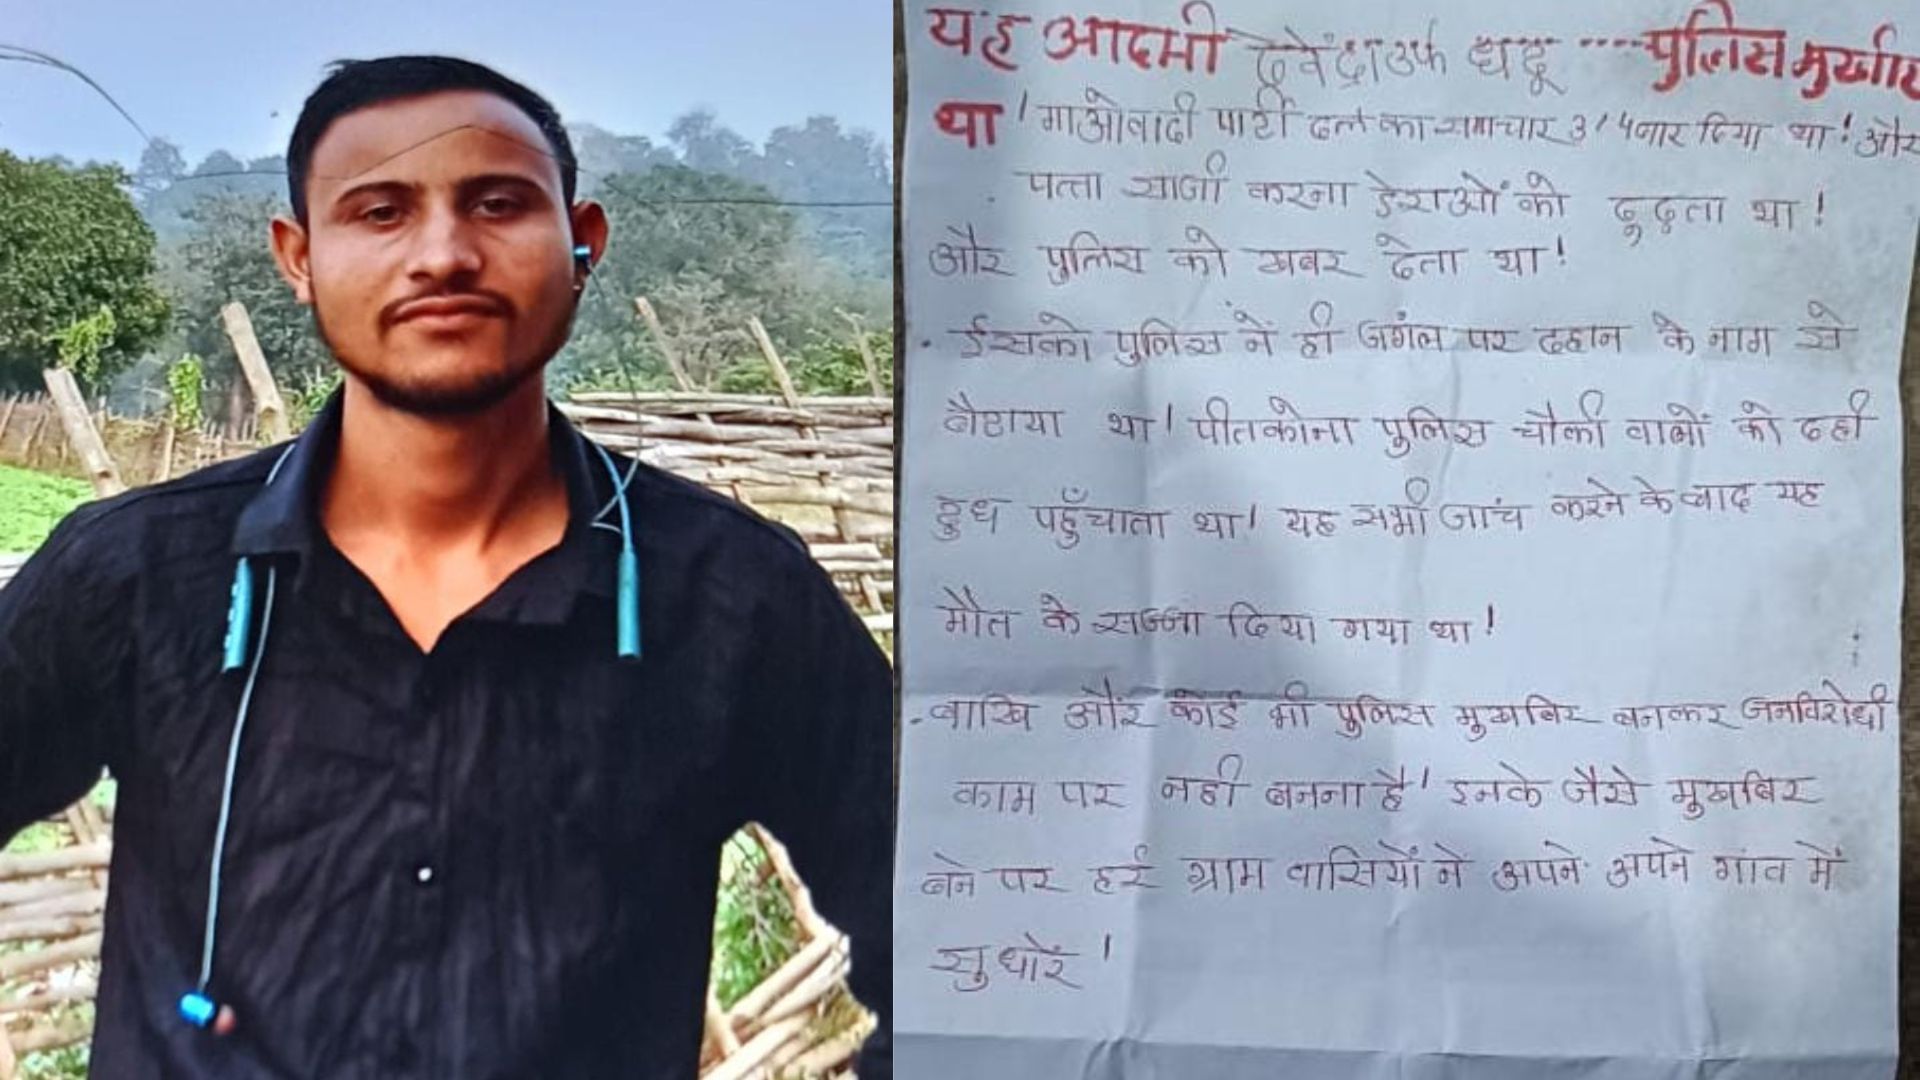 यह आदमी देवेंद्रा उर्फ धदू ...... पुलिस मुखबिर
था! माओवादी पार्टी दल का समाचार 3/4 बार दिया था! और
पत्ता साजी करना डेराओं को ढूढ़ता था!
और पुलिस को खबर देता था!
ईसको पुलिस ने ही जगंल पर दहान के नाम से
बैठाया था! पीतकोना पुलिस चौकी वालों को दही
दुध पहुँचाता था! यह सभी जांच करने के बाद यह
मौत के सज्जा दिया गया था!
बाखि और कोई भी पुलिस मुखबिर बनकर जनविरोधी
काम पर नही बनना है! इनके जैसे मुखबिर
बने पर हर ग्राम वासियों ने अपने अपने गांव में
सुधारें!